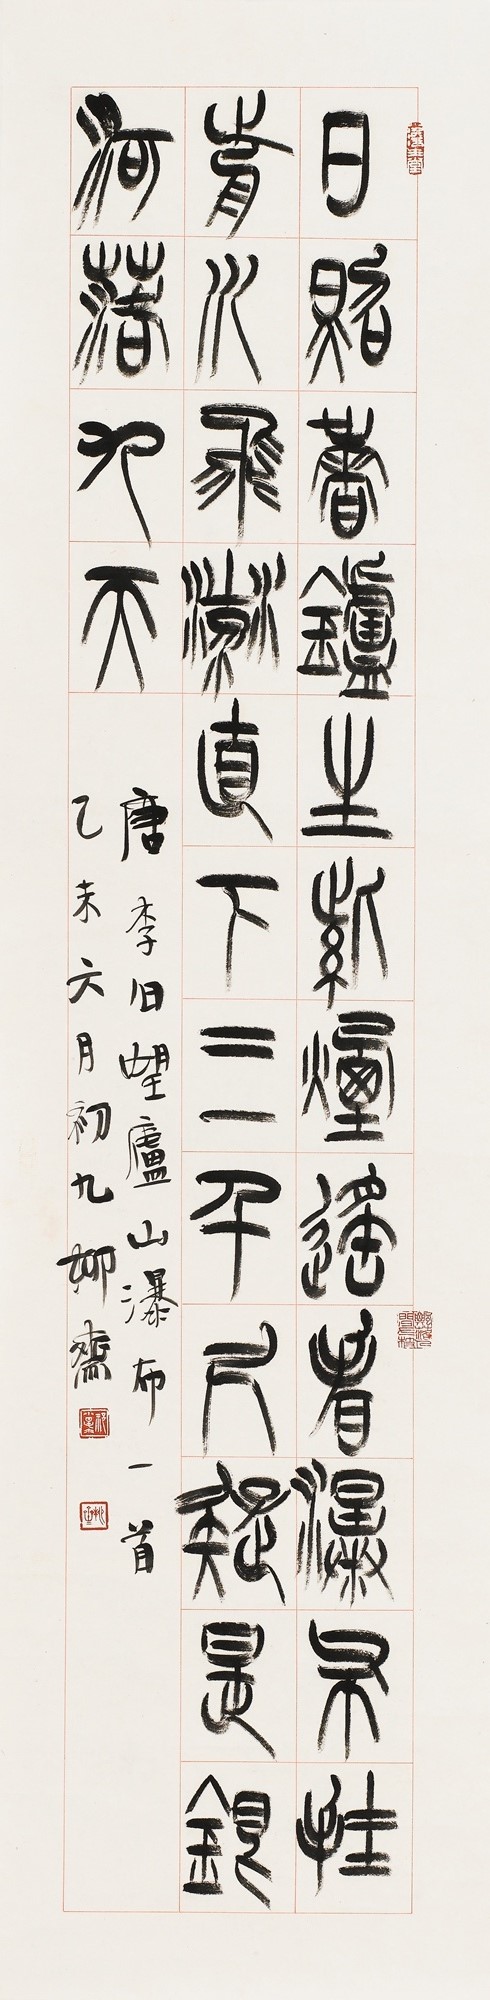 日照香鑪生紫煙遙看瀑布挂
前川飛流直下三千尺疑是銀
河落九天
唐李白望廬山瀑布一首
乙未六月初九柳齋